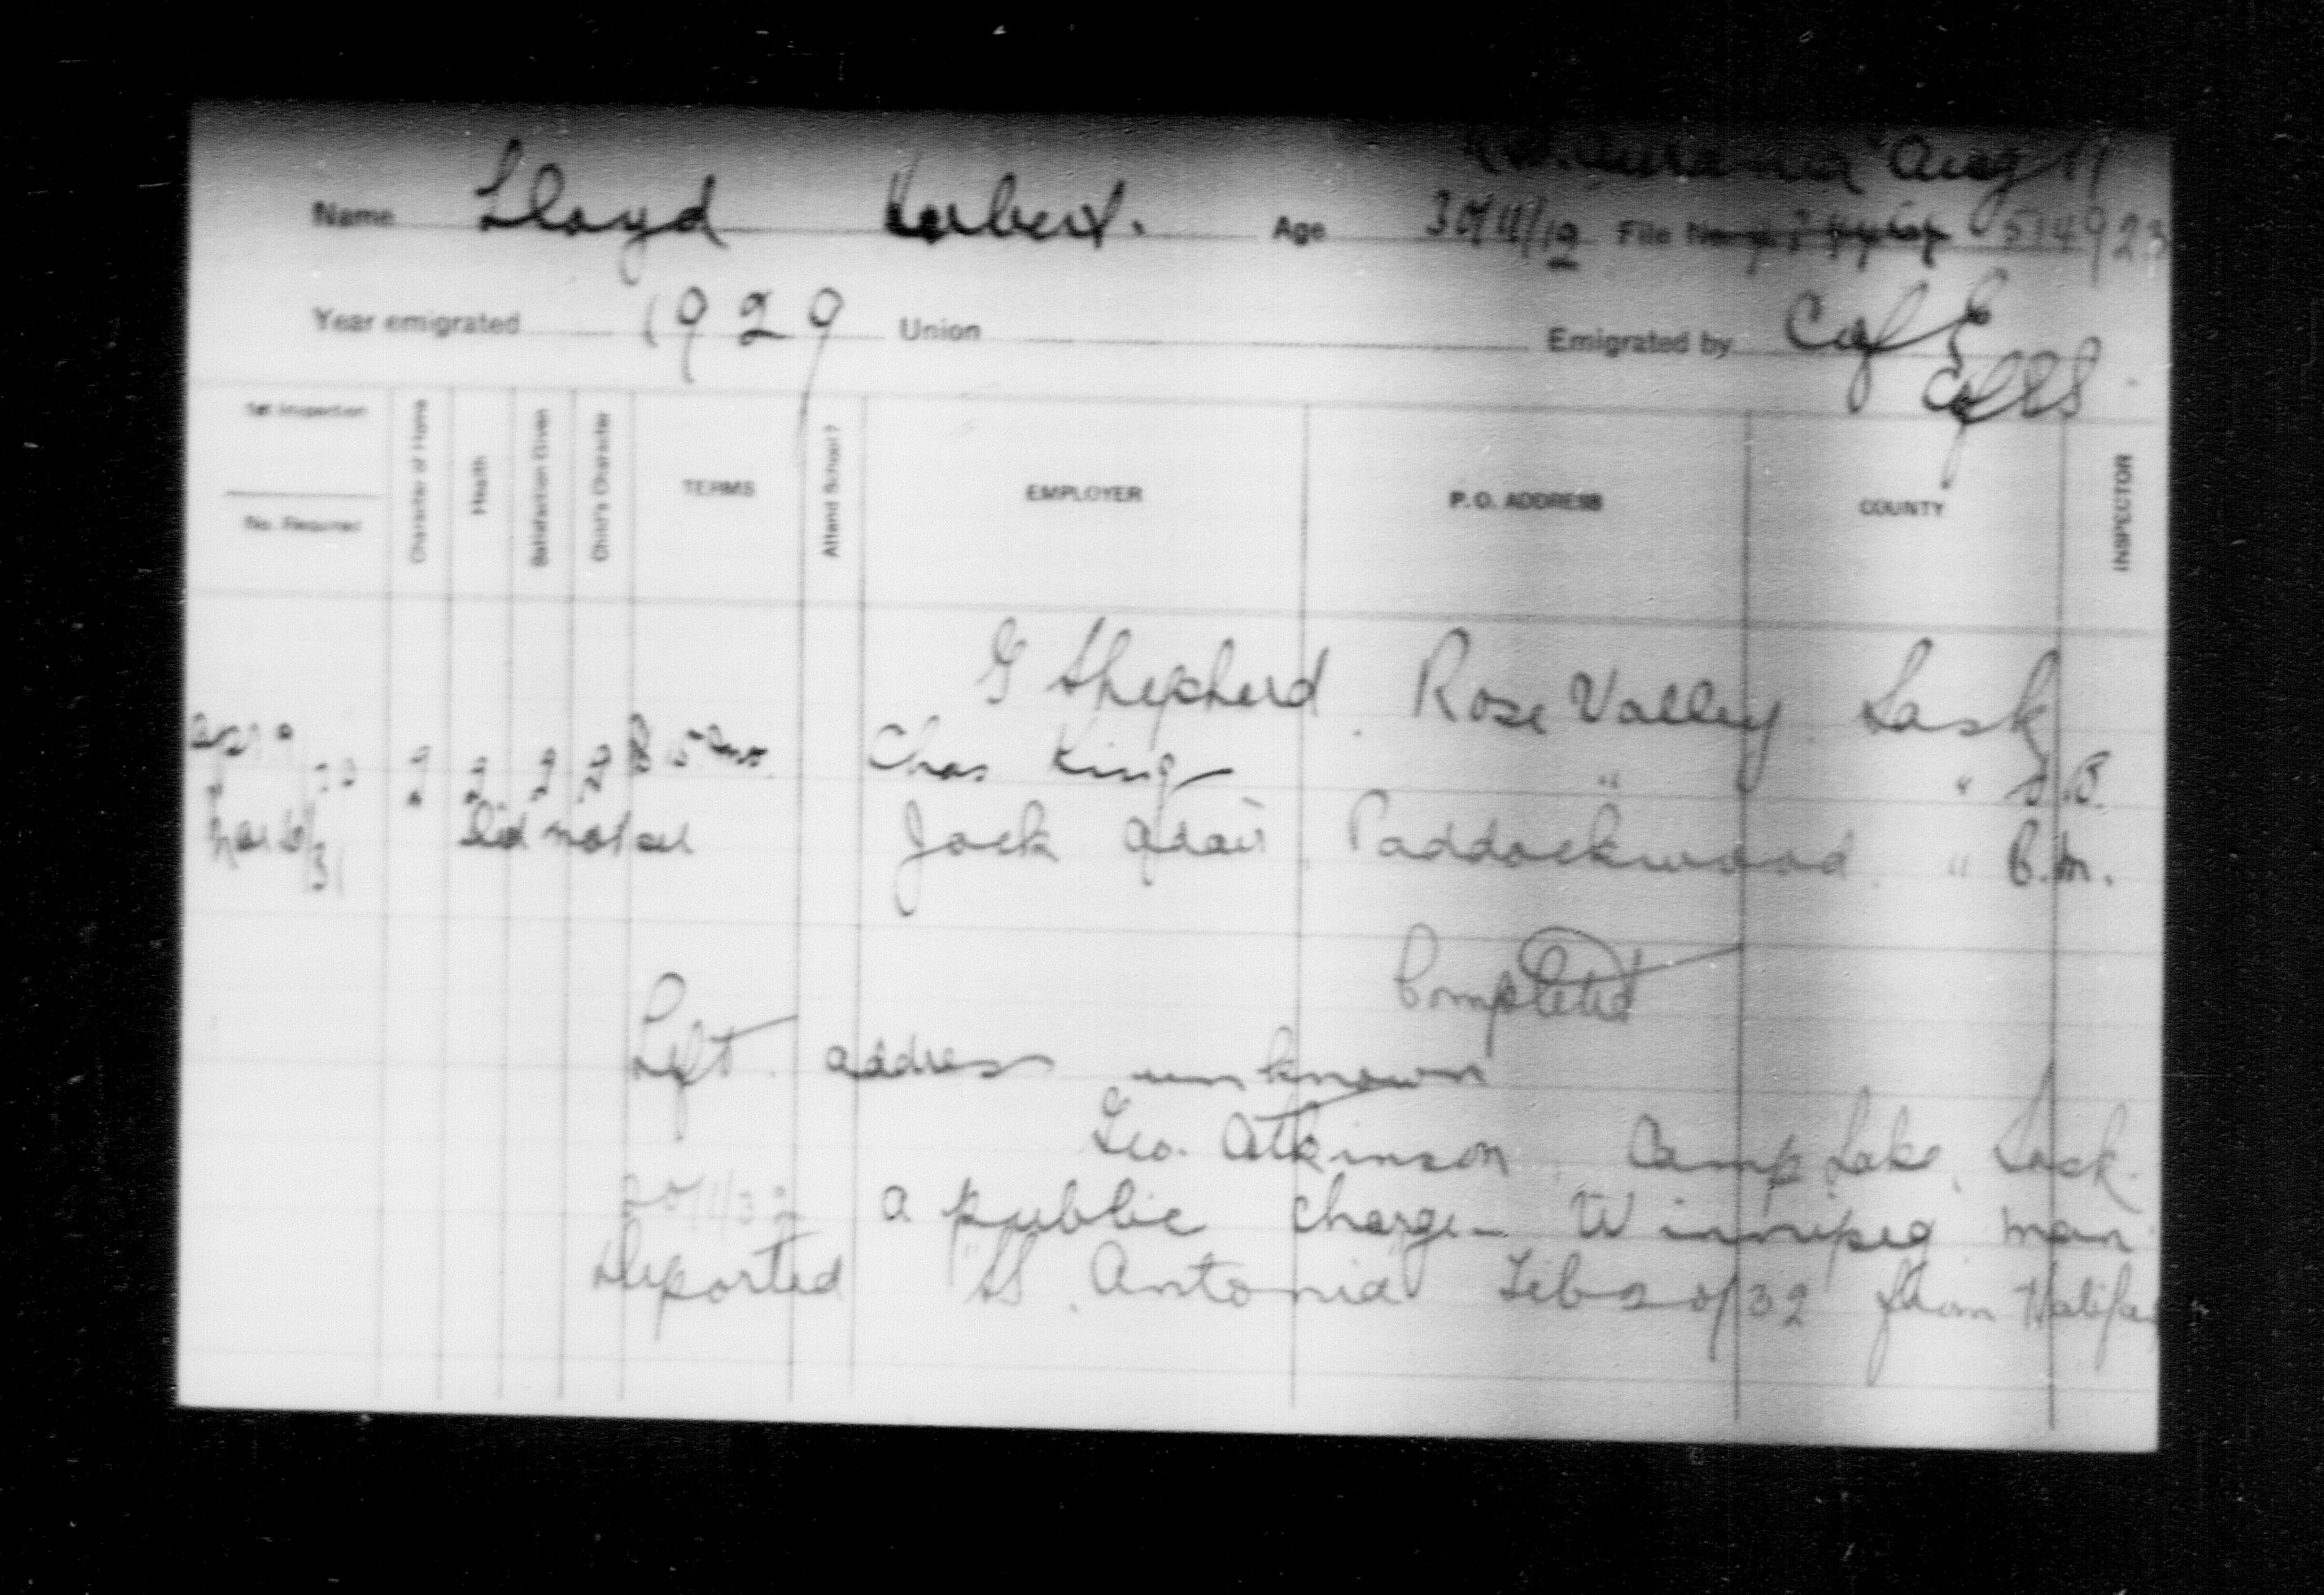 Aurania Aug 11
Name Lloyd Herbert. Age 30/11/12 File No. 514923
Year emigrated 1929 Union Emigrated by Cof E
1st Inspection
No. Required
Character of Home
Health
Satisfaction Given
Child's Character
TERMS
Attend School?
EMPLOYER
P. O. ADDRESS
COUNTY
INSPECTOR
G Shepherd Rose Valley Sask
Chas King " "
Did not see Jack Adair Paddockwood " B.M.
Completed
Left address unknown
Geo. Atkinson Camp Lake, Sask.
20/1/32 a public charge - Winnipeg man
Deported "SS. Antonia" Feb 20/32 from Halifax